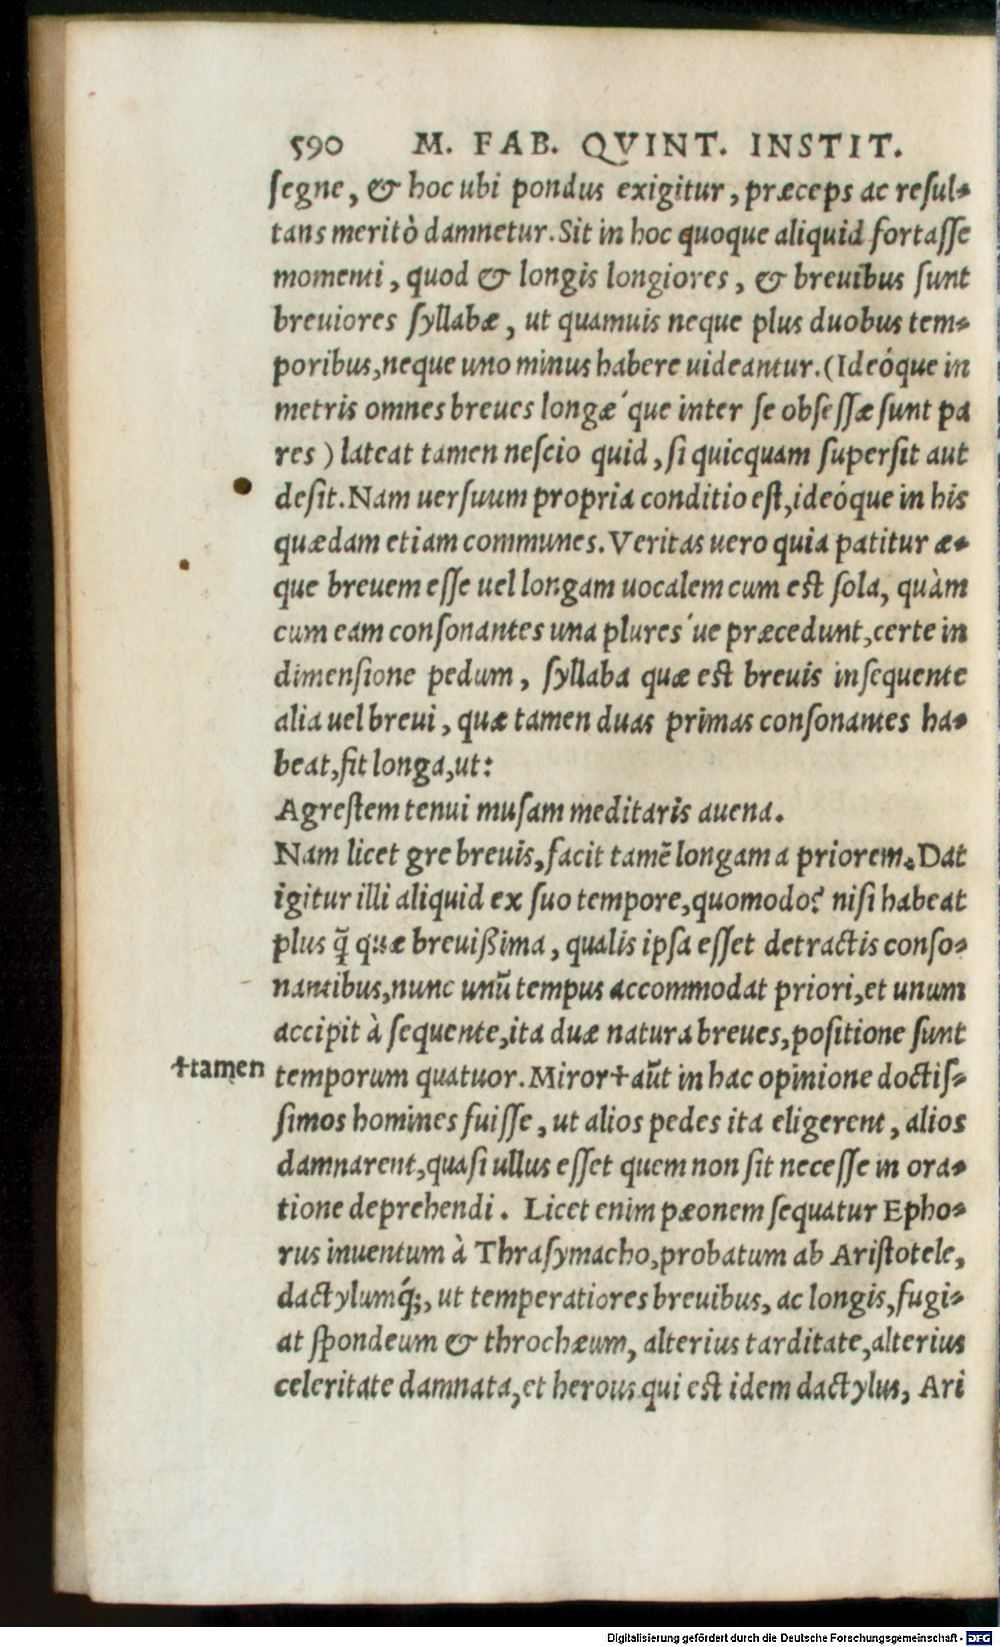 590 M. FAB. QVINT. INSTIT.
segne, & hoc ubi pondus exigitur, præceps ac resul-
tans meritò damnetur. Sit in hoc quoque aliquid fortasse
momenti, quod & longis longiores, & breuibus sunt
breuiores syllabæ, ut quamuis neque plus duobus tem-
poribus, neque uno minus habere uideantur. (Ideóque in
metris omnes breues longæ´que inter se obsessæ sunt pa
res) lateat tamen nescio quid, si quicquam supersit aut
desit. Nam uersuum propria conditio est, ideóque in his
quædam etiam communes. Veritas uero quia patitur æ-
que breuem esse uel longam uocalem cum est sola, quàm
cum eam consonantes una plures´ue præcedunt, certe in
dimensione pedum, syllaba quæ est breuis insequente
alia uel breui, quæ tamen duas primas consonantes ha-
beat, fit longa, ut:
Agrestem tenui musam meditaris auena.
Nam licet gre breuis, facit tamē longam a priorem. Dat
igitur illi aliquid ex suo tempore, quomodo? nisi habeat
plus q̄ quæ breuißima, qualis ipsa esset detractis conso-
nantibus, nunc unū tempus accommodat priori, et unum
accipit à sequente, ita duæ natura breues, positione sunt
✝tamen temporum quatuor. Miror✝ aūt in hac opinione doctis-
simos homines fuisse, ut alios pedes ita eligerent, alios
damnarent, quasi ullus esset quem non sit necesse in ora-
tione deprehendi. Licet enim pæonem sequatur Epho-
rus inuentum à Thrasymacho, probatum ab Aristotele,
dactylumq́;, ut temperatiores breuibus, ac longis, fugi-
at spondeum & throchæum, alterius tarditate, alterius
celeritate damnata, et herous qui est idem dactylus, Ari
Digitalisierung gefördert durch die Deutsche Forschungsgemeinschaft - DFG